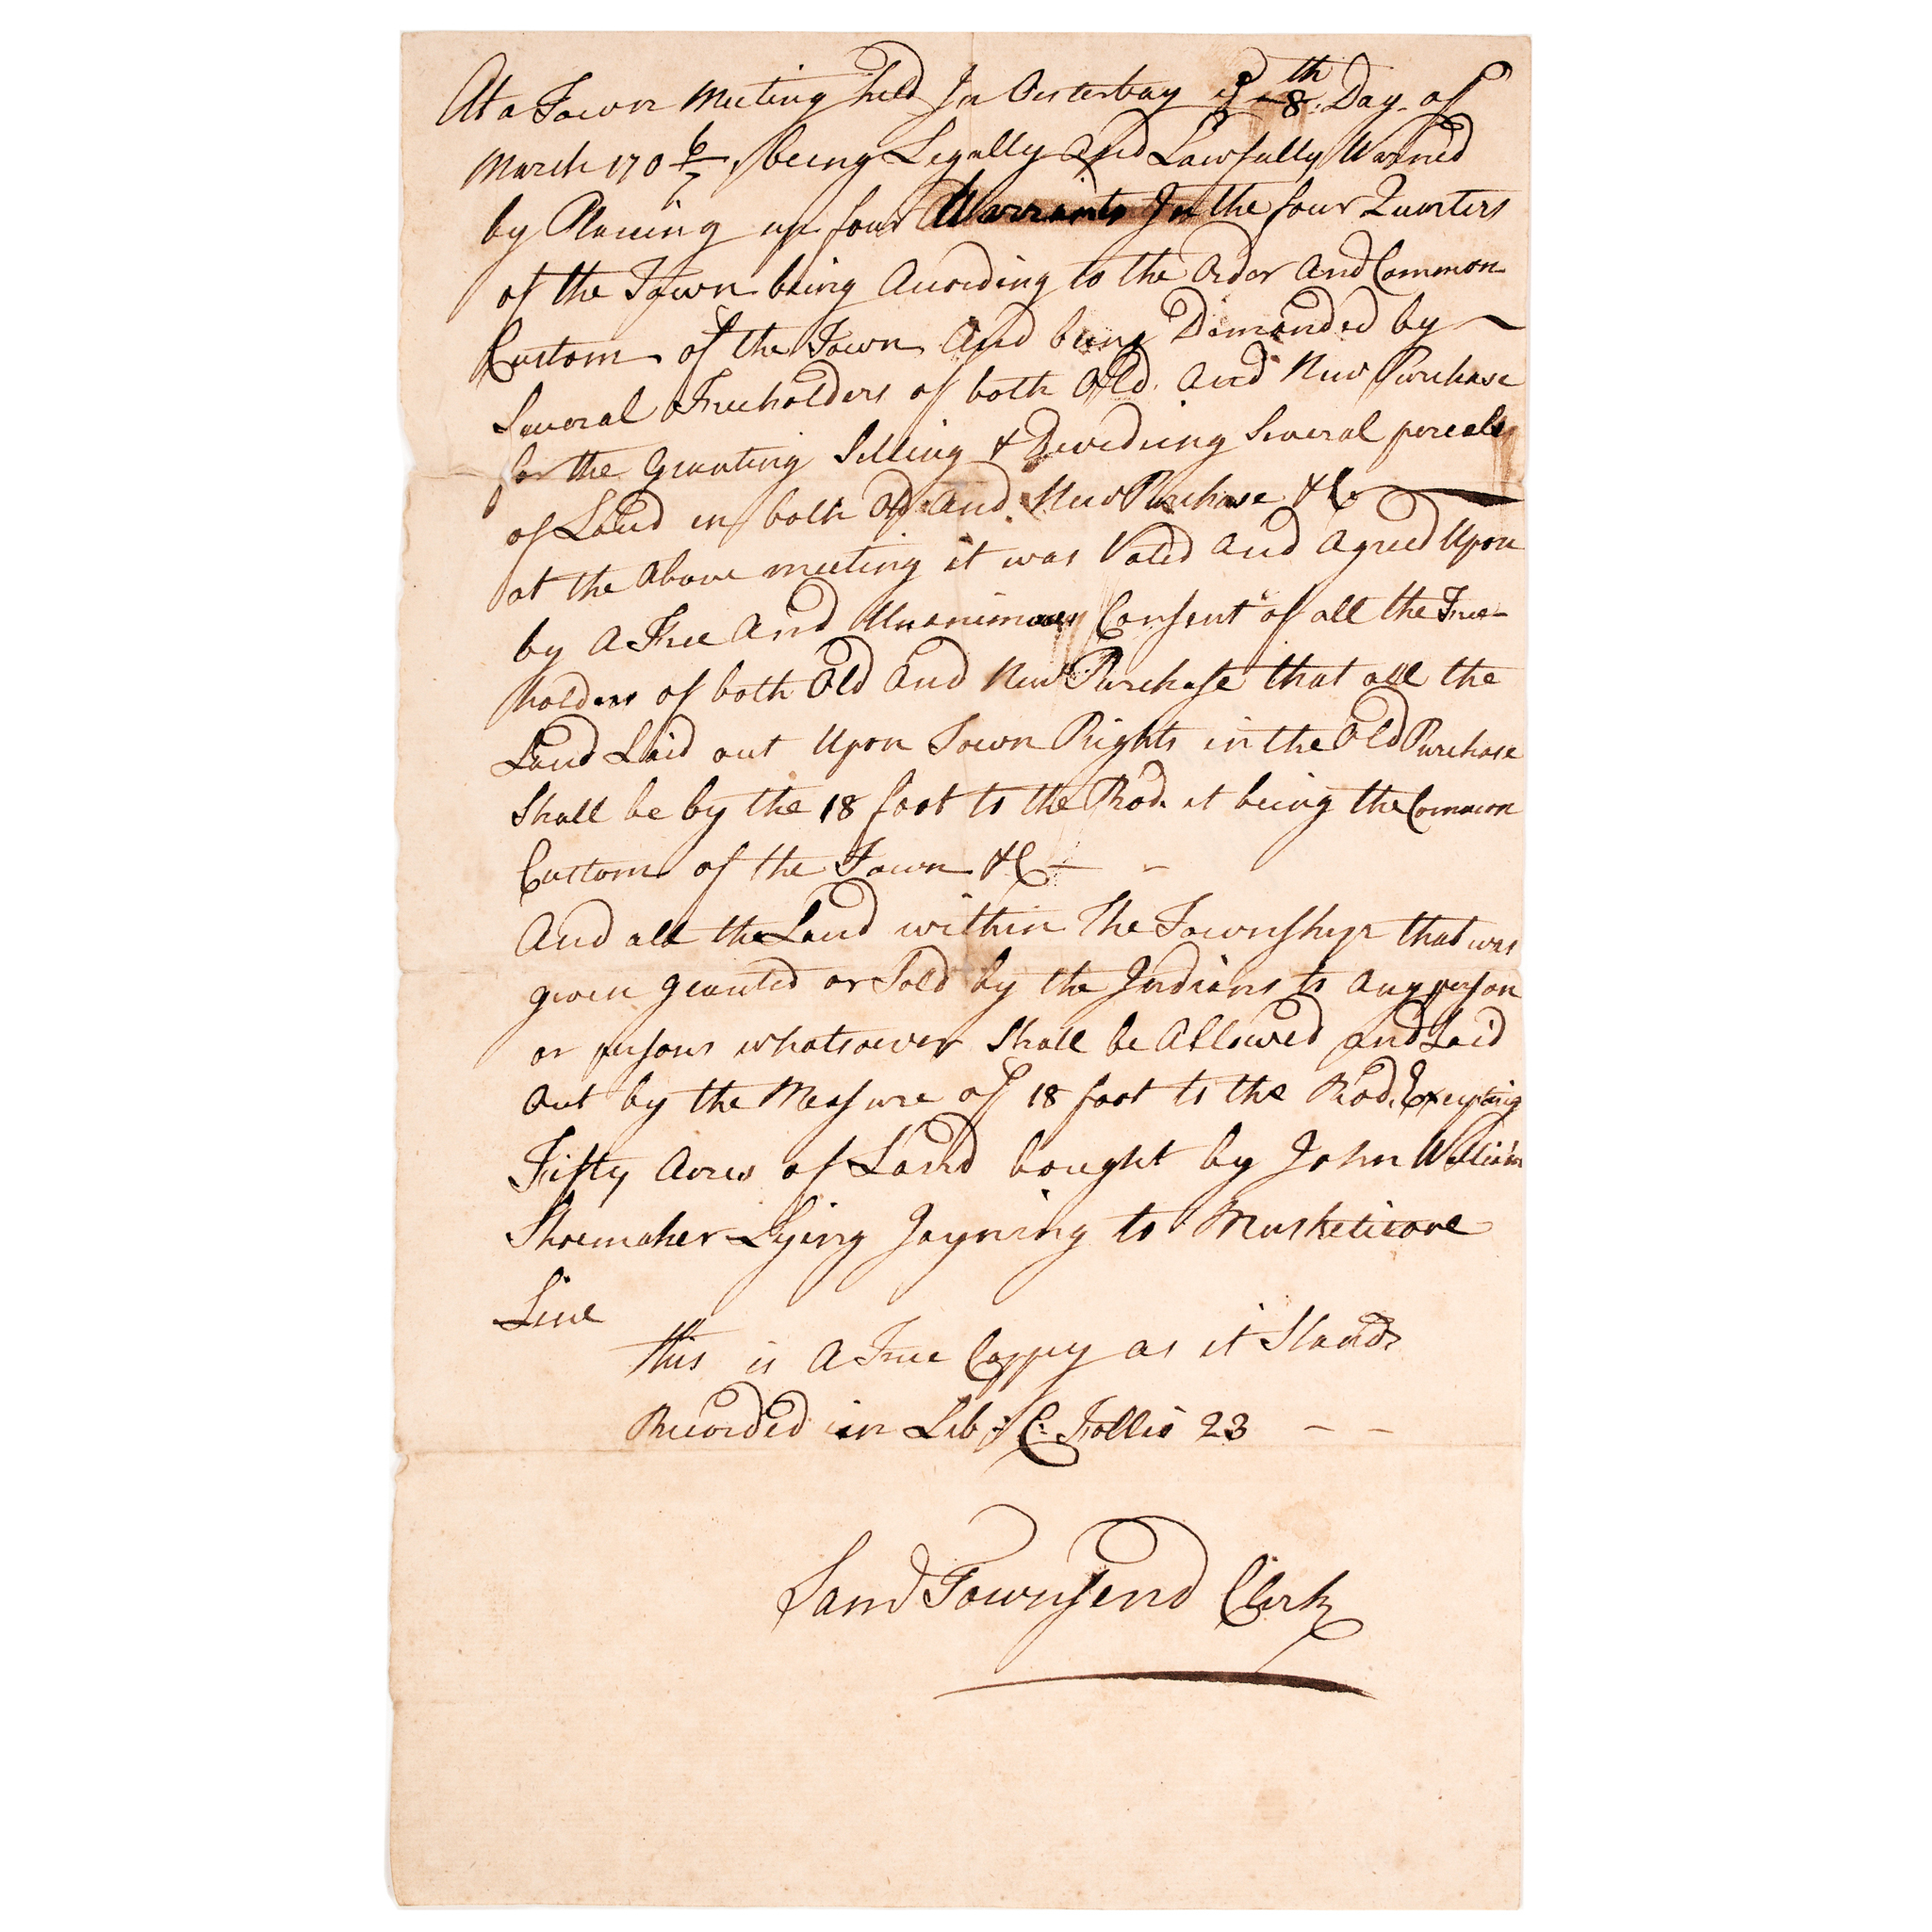 At a Town Meeting held In Oesterbay ye 8th Day of
March 170 6/7 being Legally And Lawfully Warned
by Placeing up four Warrants In the four Quarters
of the Town being According to the Order And Common
Custom of the Town And being Demanded by
Several Freeholders of both Old And New Purchase
for the Granting Selling & Devideing Several percals
of Land in both Old And New Purchase &C
at the Above meeting it was Voted And Agreed Upon
by A Free And Unanimous Consent of all the Free-
holders of both Old And New Purchase that all the
Land Laid out Upon Town Rights in the Old Purchase
Shall be by the 18 foot to the Rod. it being the Common
Custom of the Town &C
And all the Land within The Township that was
given granted or Sold by the Indians to Any person
or persons whatsoever Shall be Allowed and Laid
Out by the Measure of 18 foot to the Rod. Excepting
Fifty Acres of Land bought by John William
Shoemaker Lying Joyning to Musketicove
Line
this is A True Coppy as it Stands
Recorded in Lib: C: Follio 23 - -
Saml Townsend Clerk